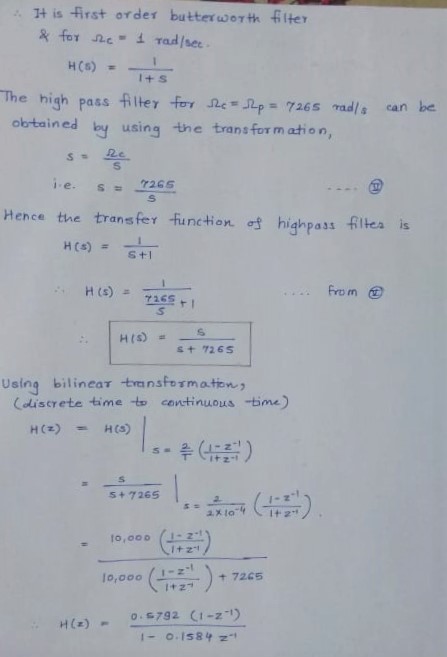 ∴ It is first order butterworth filter
& for Ωc = 1 rad/sec.
H(s) = 1 / 1+s
The high pass filter for Ωc = Ωp = 7265 rad/s can be
obtained by using the transformation,
s = Ωc / s
i.e. s = 7265 / s ....
Hence the transfer function of highpass filter is
H(s) = 1 / s+1
∴ H(s) = 1 / (7265/s + 1) .... from
∴ H(s) = s / s+7265
Using bilinear transformation,
(discrete time to continuous time)
H(z) = H(s) | s = 2/T (1-z⁻¹ / 1+z⁻¹)
= s / s+7265 | s = 2 / 2×10⁻⁴ (1-z⁻¹ / 1+z⁻¹).
= 10,000 (1-z⁻¹ / 1+z⁻¹) / 10,000 (1-z⁻¹ / 1+z⁻¹) + 7265
∴ H(z) = 0.5792 (1-z⁻¹) / 1- 0.1584 z⁻¹